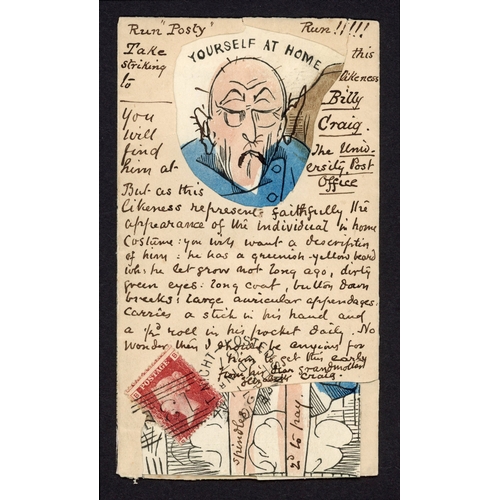 Run "Posty" Run!!!!!
YOURSELF AT HOME
Take this
striking likeness
to Billy
you Craig.
will The Univ-
find ersity, Post
him at Office
But as this
likeness represents faithfully the
appearance of the individual in home
Costume: you will want a description
of him: he has a greenish-yellow beard
wh: he let grow not long ago, dirty
green eyes: long coat, button down
breeks: large auricular appendages.
Carries a stick in his hand and
a ½d roll in his pocket daily. No
wonder then I should be anxious for
him to get this early
from his dear grandmother
Craig.
POSTAGE
2d to pay.